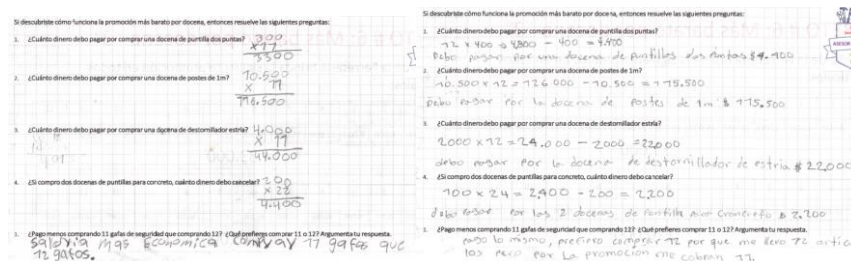 Si descubriste cómo funciona la promoción más barato por docena, entonces resuelve las siguientes preguntas:
1. ¿Cuánto dinero debo pagar por comprar una docena de puntilla dos puntas? 300
x 11
3300
2. ¿Cuánto dinero debo pagar por comprar una docena de postes de 1m? 10.500
x 11
116.500
3. ¿Cuánto dinero debo pagar por comprar una docena de destornillador estría? 4.000
x 11
44.000
4. ¿Si compro dos docenas de puntillas para concreto, cuánto dinero debo cancelar? 200
x 22
4.400
5. ¿Pago menos comprando 11 gafas de seguridad que comprando 12? ¿Qué prefieres comprar 11 o 12? Argumenta tu respuesta.
saldria mas economica comprar 11 gafas que
12 gafas.
Si descubriste cómo funciona la promoción más barato por docena, entonces resuelve las siguientes preguntas:
1. ¿Cuánto dinero debo pagar por comprar una docena de puntilla dos puntas?
12 x 400 = 4.800 - 400 = 4.400
Debo pagar por una docena de puntillas dos puntas $4.400
2. ¿Cuánto dinero debo pagar por comprar una docena de postes de 1m?
10.500 x 12 = 126.000 - 10.500 = 115.500
Debo pagar por la docena de postes de 1m $ 115.500
3. ¿Cuánto dinero debo pagar por comprar una docena de destornillador estría?
2000 x 12 = 24.000 - 2000 = 22000
debo pagar por la docena de destornillador de estria $ 22.000
4. ¿Si compro dos docenas de puntillas para concreto, cuánto dinero debo cancelar?
100 x 24 = 2,400 - 200 = 2,200
debo pagar por las 2 docenas de puntilla $ 2.200
5. ¿Pago menos comprando 11 gafas de seguridad que comprando 12? ¿Qué prefieres comprar 11 o 12? Argumenta tu respuesta.
pago lo mismo, prefiero comprar 12 por que me llevo 12 artic
los pero por la promoción me cobran 11.
ASESOR